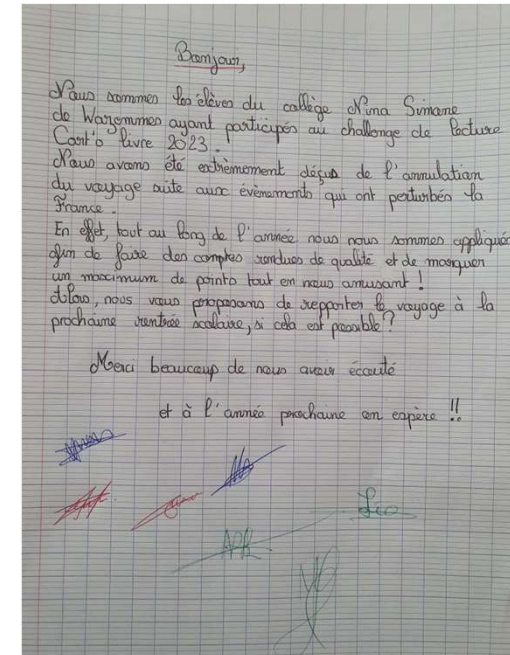 Bonjour,
Nous sommes les élèves du collège Nina Simone
de Wazemmes ayant participés au challenge de lecture
Cart'o livre 2023.
Nous avons été extrèmement déçus de l'annulation
du voyage suite aux évènements qui ont perturbés la
France.
En effet, tout au long de l'année nous nous sommes appliqués
afin de faire des comptes rendues de qualité et de marquer
un maximum de points tout en nous amusant !
Alors, nous vous proposons de repporter le voyage à la
prochaine rentrée scolaire, si cela est possible ?
Merci beaucoup de nous avoir écouté
et à l'année prochaine on espère !!
Léo